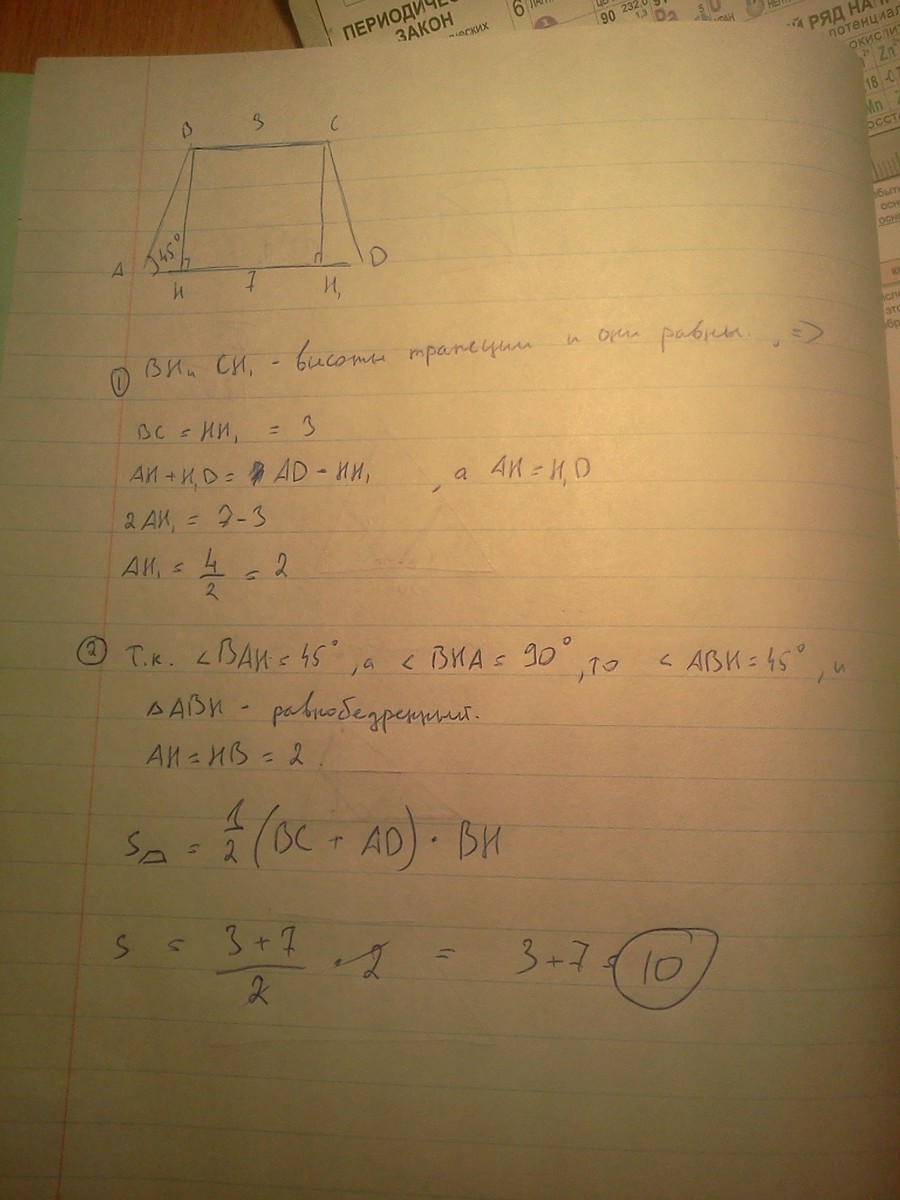 ПЕРИОДИЧЕС
ЗАКОН
6
90 232,0
РЯД НА
потенциал
окисли
Zn
18 -0,7
Mn
B 3 C
A 45° D
H 7 H₁
① BH и CH₁ - высоты трапеции и они равны. , =>
BC = HH₁ = 3
AH + H₁D = AD - HH₁ , а AH = H₁D
2AH₁ = 7-3
AH₁ = 4/2 = 2
② Т.к. <BAH = 45°, а <BHA = 90°, то <ABH = 45°, и
△ABH - равнобедренный.
AH = HB = 2.
S = 1/2 (BC + AD) · BH
S = (3+7)/2 · 2 = 3+7 = 10